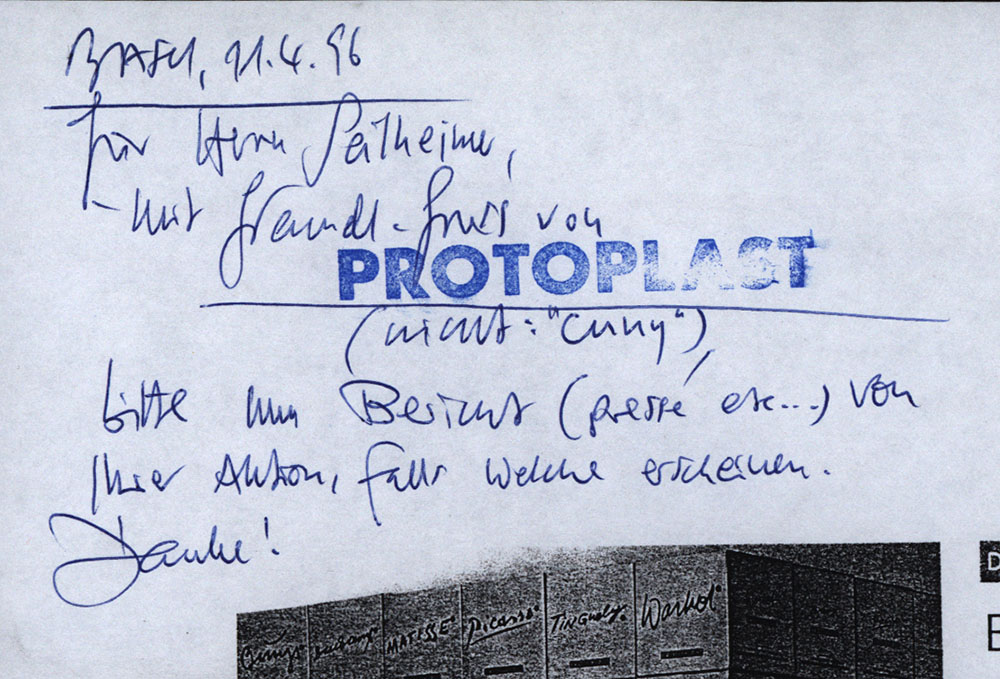 BASEL, 11.4.96
für Herrn Peilheimer,
- mit freundl. Gruß von
PROTOPLAST
(nicht: "Cuny"),
bitte um Bericht (presse etc...) von
Ihrer Aktion, falls welche erscheinen.
Danke!
MATISSE Picasso Tinguely Warhol
D
E